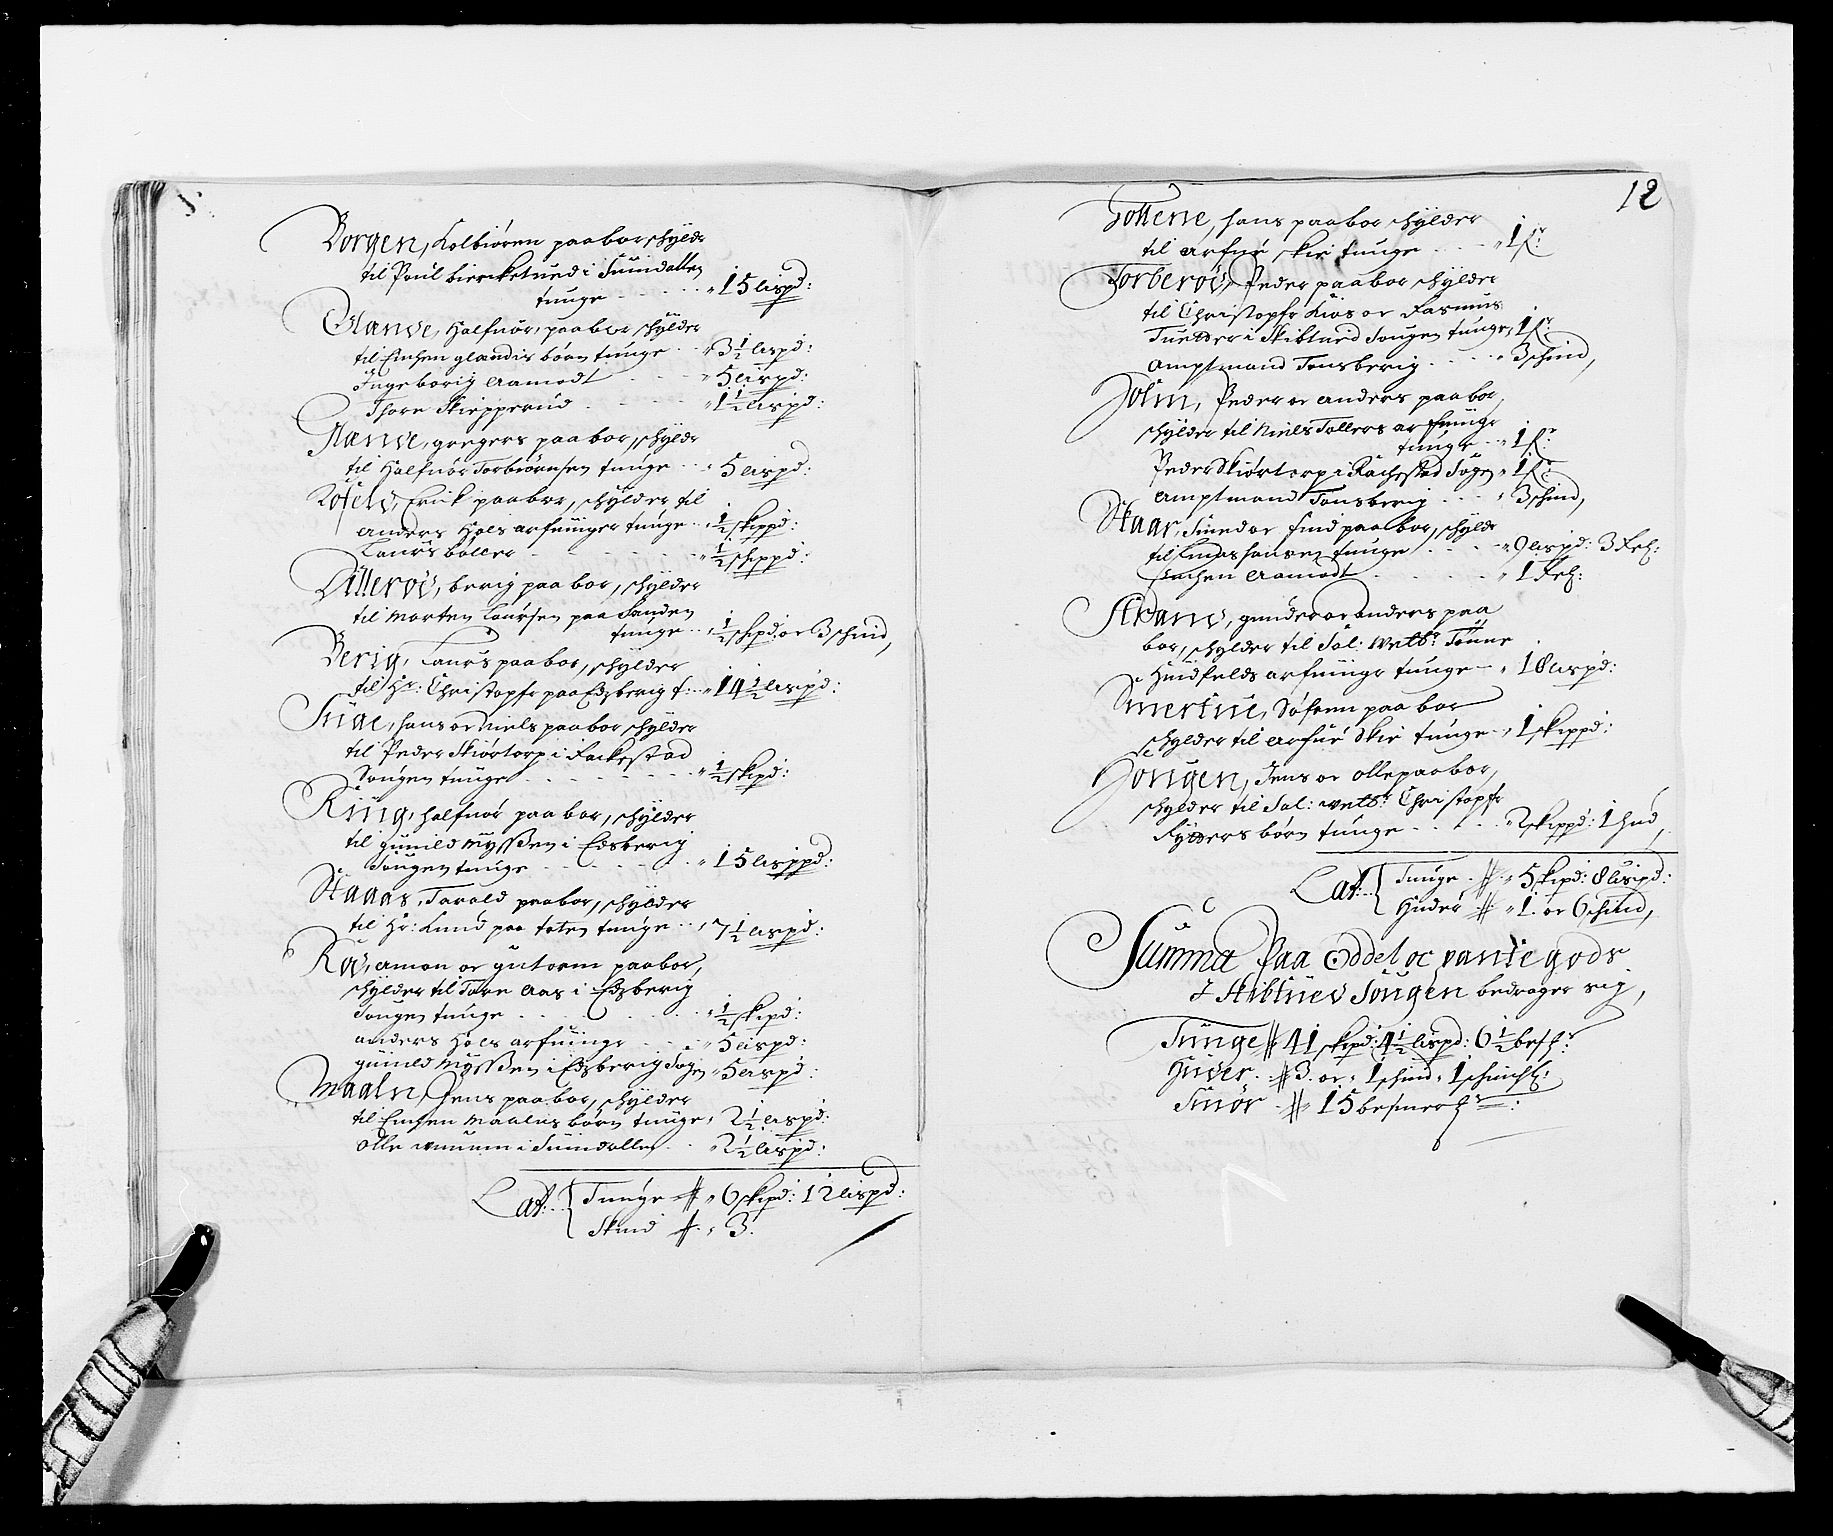 Borgen, Kolbiøren paabor, schylder
til Poul bierchetued i Suindallen
tunge - - - - 15 lispd:
Glende, Halfuor, paaboer schylder
til Einsen glendis børn tunge - - 3½ lispd:
Ingeborrig Aamodt - - - 5 lispd:
Thore Skiepperud - - - - 1½ lispd:
Glende, gregers paabor, schylder
til Halfuor Torbiørnsen tunge - - 5 lispd:
Erick paaboer, schylder til
Anders Hols arfuinger tunge - - ½ skippd:
Laurs bøller - - - - ½ schippd:
Dillerød, berig paaboer, schylder
til Morten Laursen paa Sanden
tunge - - ½ schipd: oc 3 schind,
Berig, Laurs paaboer, schylder
til Hr: Christopfr paa Edsberig t: - 14½ lispd:
hans oc Niels paaboer schylder
til Peder Skiørtorp i Rackestad
Sougen tunge - - - - ½ skipd:
Ring, halfuor paaboer, schylder
til gunild Myssen i Edsberig
Sougen tunge - - - - 15 lisppd:
Skaar, Tarald paaboer, schylder
til Hr: Knud paa toten tunge - - 7½ lispd:
Rød, Amon oc gutorm paaboer,
schylder til Tore Aas i Edsberig
Sougen tunge - - - - ½ skipd:
Anders Hols arfuinge - - 5 lispd:
gunild Myssen i Edsberig Sogn - 5 lispd:
Maaln, Jens paaboer, schylder
til Einsen Maalnis børn tunge, 2½ lispd:
Olle i Suindallen - - 2½ lispd:
Lat: - { Tunge # - 6 skipd: 12 lispd:
Skind # - 3.
12
Tottene, hans paaboer schylder
til Arfue Skie tunge - - - 1 fr:
Torberød, Peder paaboer schylder
til Christopfr Kios oc Rasmus
Tuetter i Skibtued Sougen tunge, 1 fr:
Amptmand Tonsberig - - - 3 schind,
Holm, Peder oc Anders paaboer,
schylder til Niels Tollers arfuinge
tunge - - 1 fr:
Peder Skiørtorp i Rachestad Sogn - 1 fr:
Amptmand Tonsberig - - - 3 schind,
Skaar, Suend oc find paaboer, schylder
til Lucas hansen tunge - - - 9 lispd: 3 fr:
Aamodt - - - - 1 fr:
Strand, gunder oc Anders paa
boer, schylder til Sal: Welb: Tønne
Huidfelds arfuinger tunge - - 18 lispd:
Smertue, Søfren paaboer
schylder til Arfue Skie tunge - 1 skippd:
Hougen, Jens oc Olle paaboer,
schylder til Sal: welb: Christopfr
Rytters børn tunge - - - 2 skippd: 1 hud,
Lat: - { Tunge - # - 5 skipd: 8 lispd:
Huder # - 1. oc 6 schind,
Summa Paa Oddel oc pante gods
I Skibtued Sougen bedrager sig,
Tunge # 41 skipd: 4½ lispd: 6½
Huder - # 3. oc - 1 schind -
Smør - # - 15